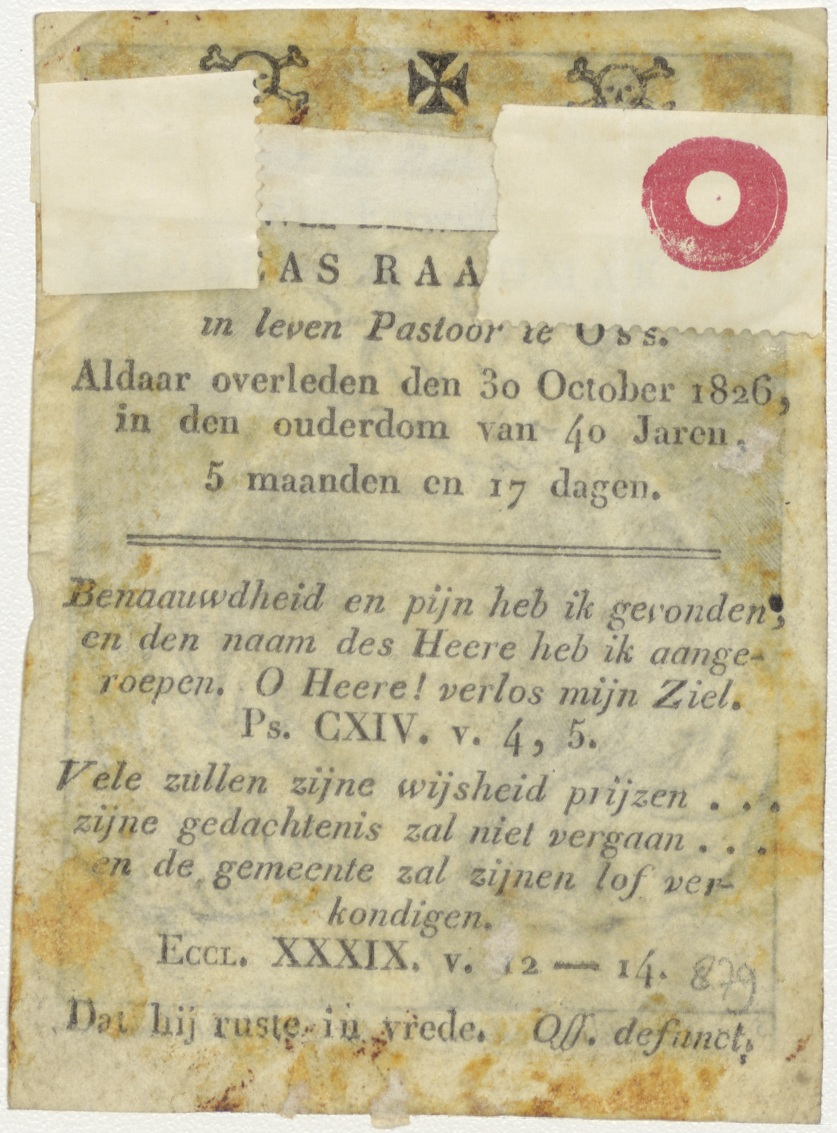 AS RAA
in leven Pastoor te Oss.
Aldaar overleden den 30 October 1826,
in den ouderdom van 40 Jaren,
5 maanden en 17 dagen.
Benaauwdheid en pijn heb ik gevonden,
en den naam des Heere heb ik aange-
roepen. O Heere! verlos mijn Ziel.
Ps. CXIV. v. 4, 5.
Vele zullen zijne wijsheid prijzen . . .
zijne gedachtenis zal niet vergaan . . .
en de gemeente zal zijnen lof ver-
kondigen.
Eccl. XXXIX. v. 12 — 14. 879
Dat hij ruste in vrede. Off. defunct.